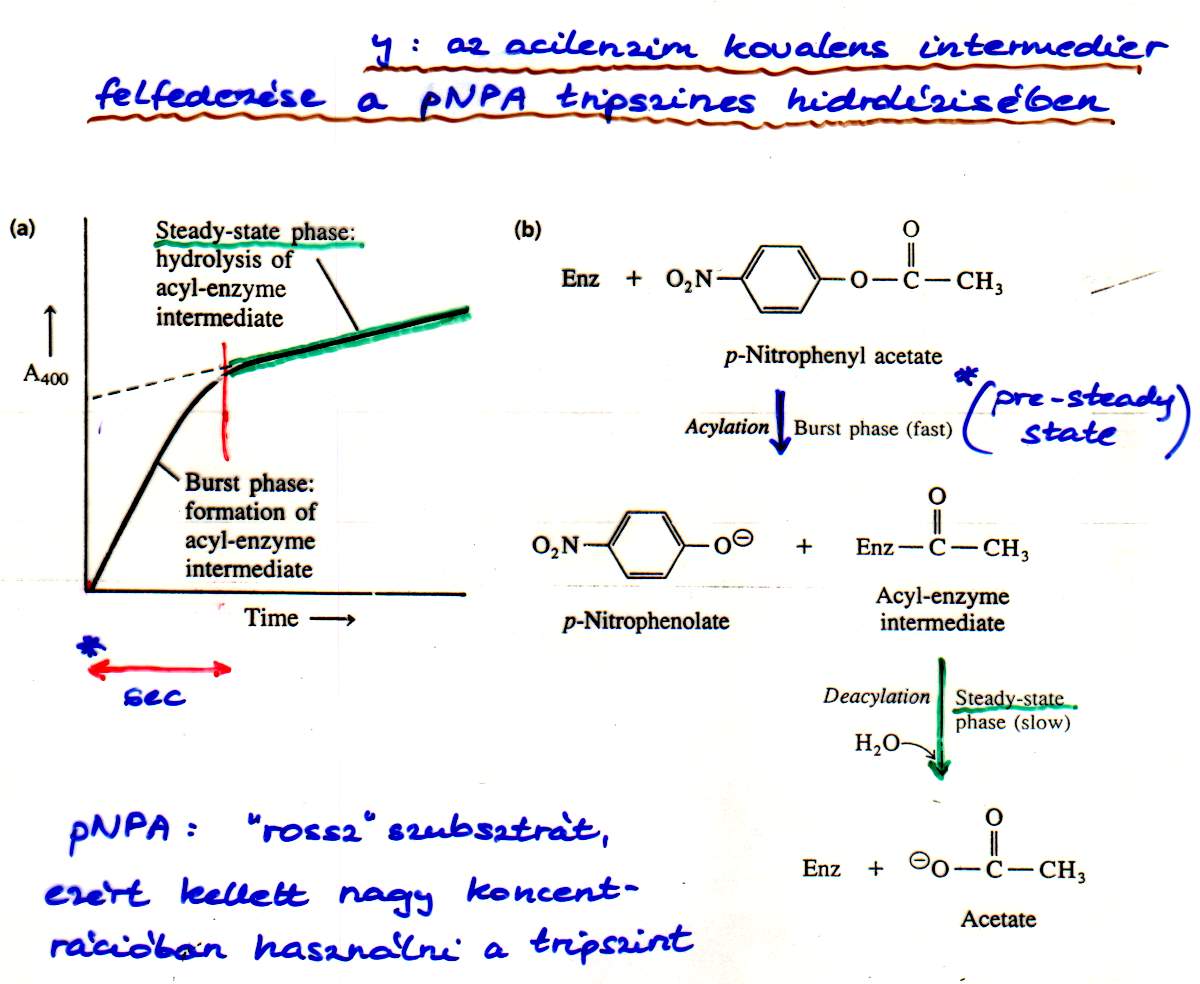 y : az acilenzim kovalens intermedier
felfedezése a pNPA tripszines hidrolízisében
(a)
Steady-state phase:
hydrolysis of
acyl-enzyme
intermediate
A400
Burst phase:
formation of
acyl-enzyme
intermediate
Time
*
sec
(b)
O
Enz + O₂N O C CH₃
p-Nitrophenyl acetate
*
Acylation Burst phase (fast) (pre-steady
state)
O
O₂N O⊖ + Enz C CH₃
p-Nitrophenolate
Acyl-enzyme
intermediate
Deacylation Steady-state
phase (slow)
H₂O
O
Enz + ⊖O C CH₃
Acetate
pNPA : "rossz" szubsztrát,
ezért kellett nagy koncent-
rációban használni a tripszint